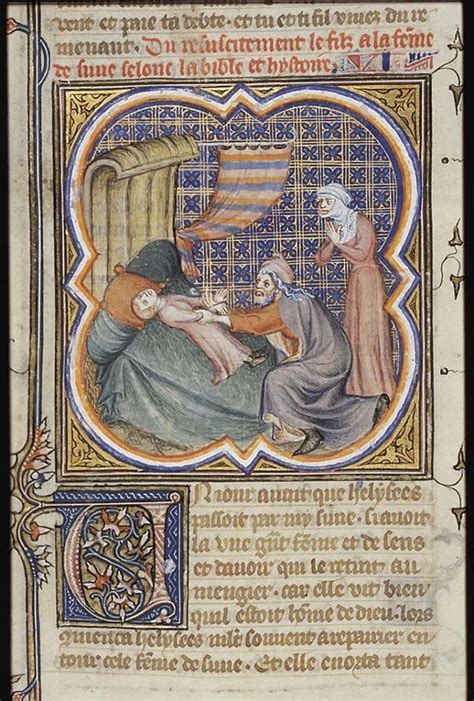 vent et paie ta debte · et tu et ti fil vivez du re
menant · Du resuscitement le filz a la feme
de sune selonc la bible et hystoire
Un iour avint que helysees
passoit par my sune · si avoit
la une grāt feme et de sens
et davoir qui le retint au
mengier · car elle vit bien
quil estoit hōme de dieu · lors
ꝯmenca helysees mlt souvent a repairier en
tour cele feme de sune · Et elle enorta tant